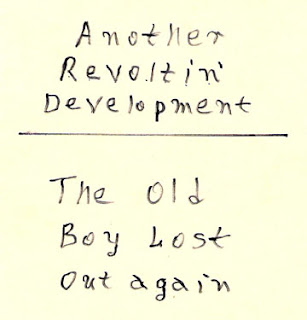 Another
Revoltin'
Development
The Old
Boy Lost
Out again